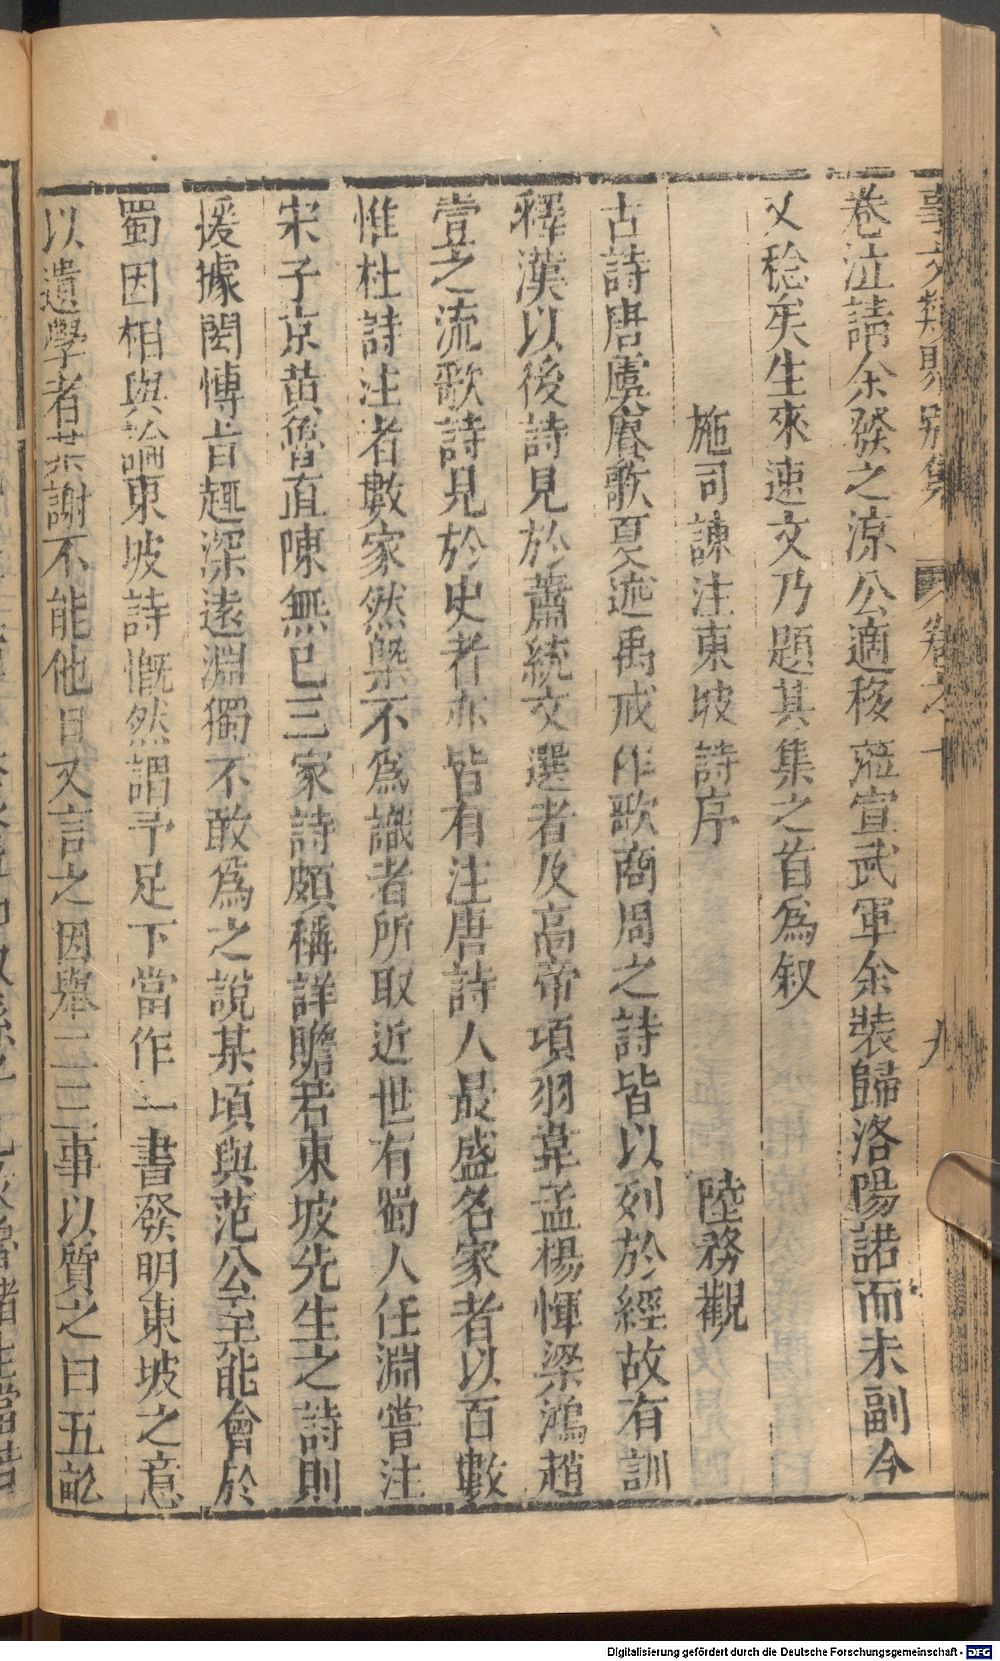 事文類聚别集 卷之十 九
卷泣請余發之涼公適移蒞宣武軍余裝歸洛陽諾而未副今
又稔矣生來速文乃題其集之首爲叙
施司諫注東坡詩序 陸務觀
古詩唐虞賡歌夏述禹戒作歌商周之詩皆以列於經故有訓
釋漢以後詩見於蕭統文選者及高帝項羽韋孟楊惲梁鴻趙
壹之流歌詩見於史者亦皆有注唐詩人最盛名家者以百數
惟杜詩注者數家然槩不爲識者所取近世有蜀人任淵嘗注
宋子京黄魯直陳無已三家詩頗稱詳贍若東坡先生之詩則
援據閎愽㫖趣深遠淵獨不敢爲之說某頃與范公至能會於
蜀因相與論東坡詩慨然謂予足下當作一書發明東坡之意
以遺學者某謝不能他日又言之因舉二三事以質之曰五畝
Digitalisierung gefördert durch die Deutsche Forschungsgemeinschaft - DFG